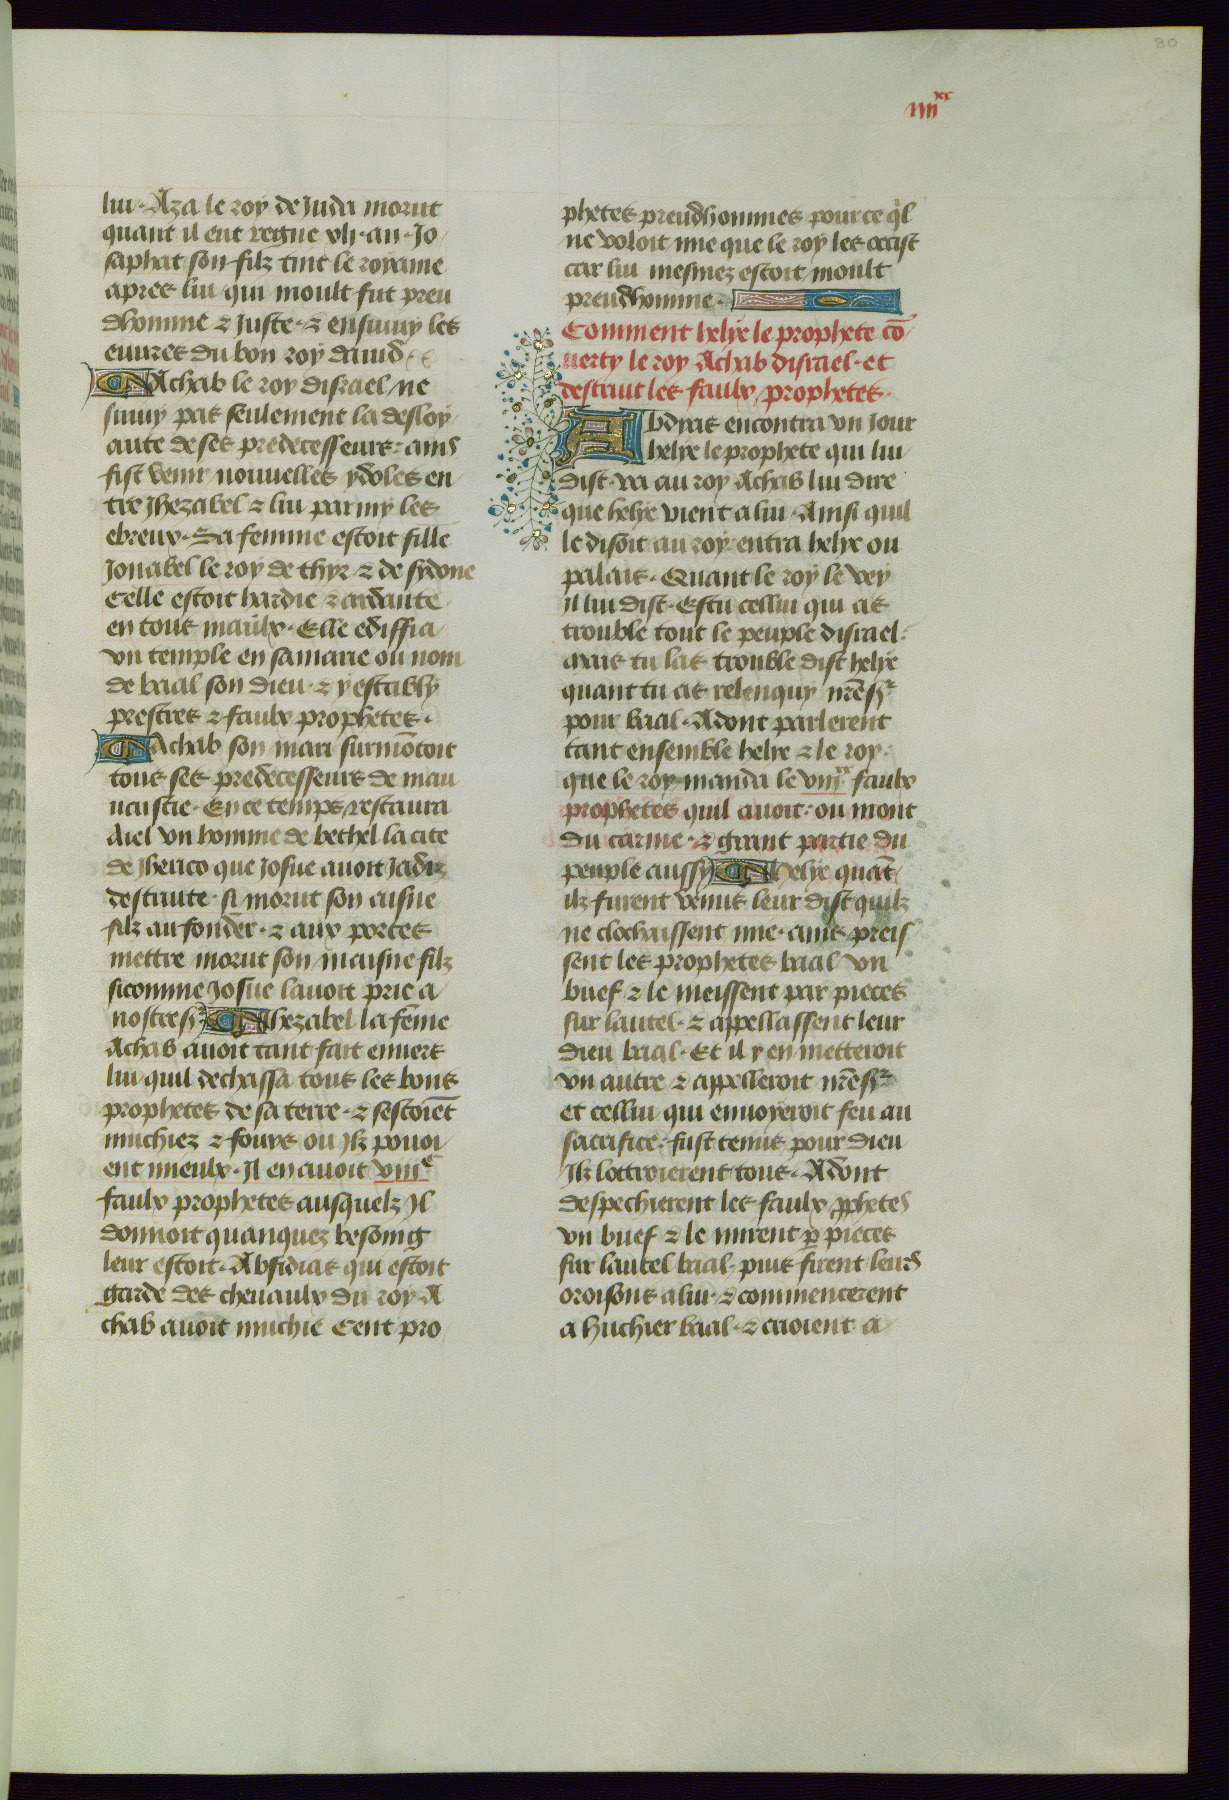 80
iiiixx
lui · Aza le roy de Juda morut
quant il eut regne xli · an · Jo
saphat son filz tint le royame
apres lui qui moult fut preu
dhomme & Juste · & ensuiuy les
euures du bon roy dauid
Achab le roy disrael ne
suiuy pas seulement la desloy
aute de ses predecesseurs · ains
fist venir nouuelles ydoles en
tre Jhezabel & lui parmy les
ebreux · Sa femme estoit fille
Jonabel le roy de thyr & de sydone
Celle estoit hardie & ardante
en tous maulx · Elle ediffia
vn temple en samarie ou nom
de baal son dieu · & y establi
prestres & faulx prophetes ·
Achab son mari surmōtoit
tous ses predecesseurs de mau
uaistie · En ce temps restaura
Aiel vn homme de bethel la cite
de Jherico que Josue auoit Jadiz
destruite · si morut son aisne
filz au fonder · & aux portes
mettre morut son maisne filz
sicomme Josue lauoit prie a
nostre sr Jhezabel la fēme
Achab auoit tant fait enuers
lui quil dechassa tous les bons
prophetes de sa terre · & sestoiēt
muchiez & fouys ou Ilz pouoi
ent mieulx · Il en auoit viiic
faulx prophetes ausquelz Il
donnoit quanquez besoing
leur estoit · Absidias qui estoit
garde des cheuaulx du roy A
chab auoit muchie Cent pro
phetes preudhommes pource ql
ne voloit mie que le roy les occist
car lui mesmez estoit moult
preudhomme ·
Comment helye le prophete cō
uerty le roy Achab disrael · et
destruit les faulx prophetes ·
Abdyas encontra vn Jour
helye le prophete qui lui
dist · va au roy Achab lui dire
que helye vient a lui · Ainsi quil
le disoit au roy entra helye ou
palais · Quant le roy le vey
il lui dist · Estu cellui qui as
trouble tout le peuple disrael ·
mais tu las trouble dist helye
quant tu as relenquy nrē sr
pour baal · Adont parlerent
tant ensemble helye & le roy ·
que le roy manda le viiic faulx
prophetes quil auoit · ou mont
du carme · & grant partie du
peuple aussy Helye quāt
ilz furent venus leur dist quilz
ne clochaissent mie · ains preis
sent les prophetes baal vn
buef & le meissent par pieces
sur lautel · & appellassent leur
dieu baal · Et il y en metteroit
vn autre & appelleroit nrē sr
et cellui qui enuoyeroit feu au
sacrifice · fust tenus pour dieu
Ilz lottroierent tous · Adont
despechierent les faulx pphetes
vn buef & le mirent p pieces
sur lautel baal · puis firent leurs
oroisons a lui · & commencerent
a huchier baal · & crioient a